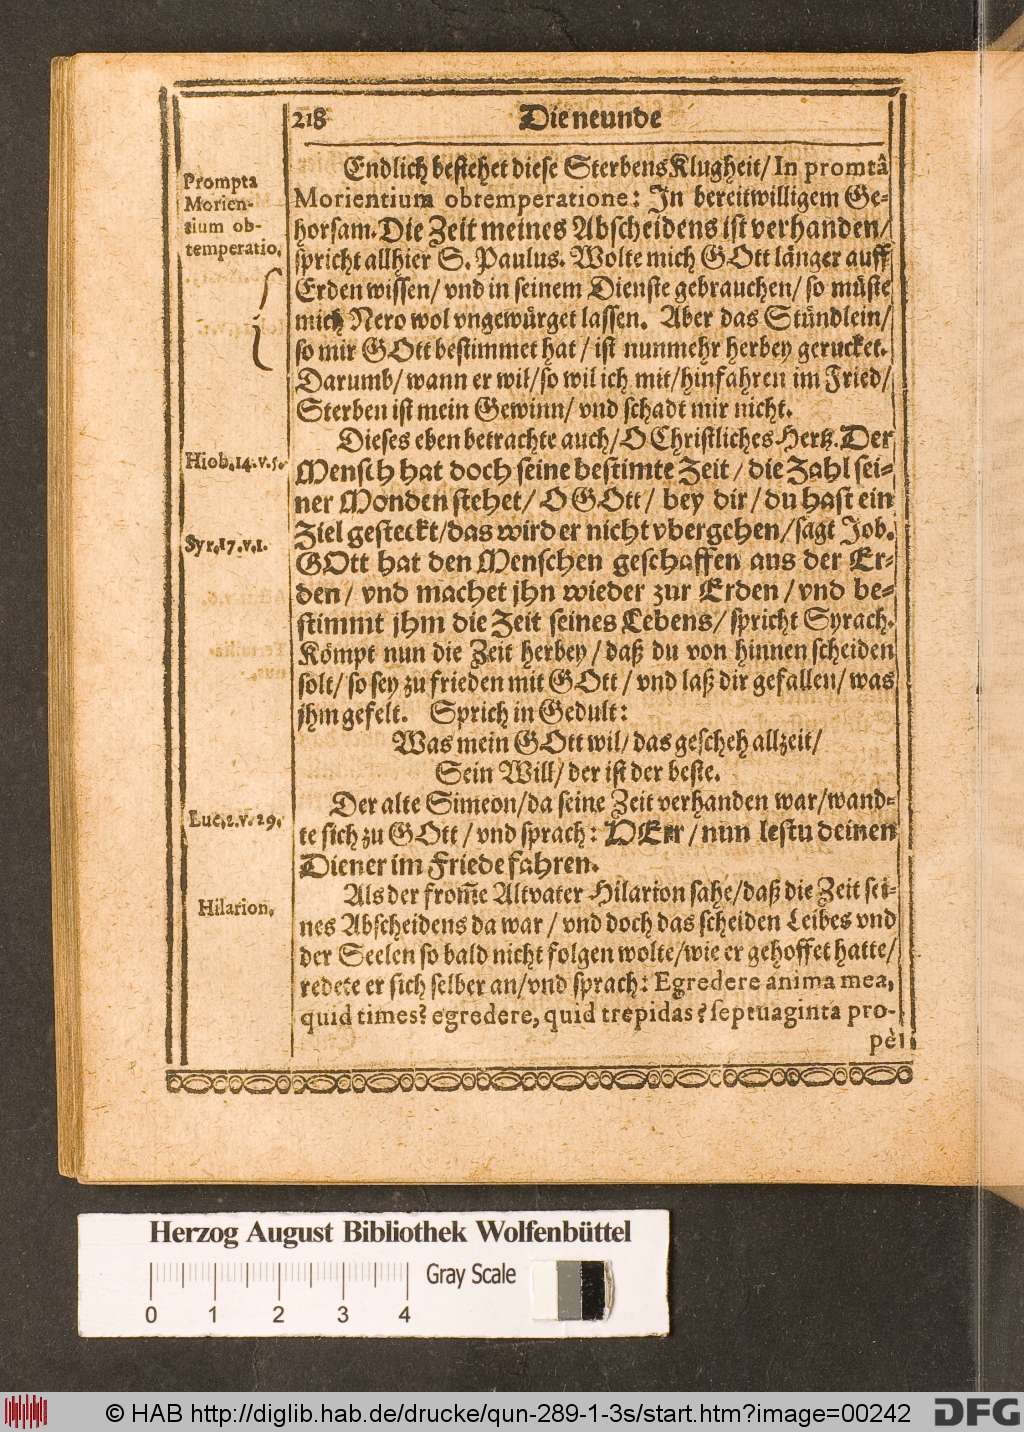 218 Die neunde
Prompta
Morien-
tium ob-
temperatio.
Endlich bestehet diese SterbensKlugheit/ In promtâ
Morientium obtemperatione: In bereitwilligem Ge-
horsam. Die Zeit meines Abscheidens ist verhanden/
spricht allhier S. Paulus. Wolte mich GOtt länger auff
Erden wissen/ vnd in seinem Dienste gebrauchen/ so müste
mich Nero wol vngewürget lassen. Aber das Stündlein/
so mir GOtt bestimmet hat / ist nunmehr herbey gerucket.
Darumb/ wann er wil/ so wil ich mit/ hinfahren im Fried/
Sterben ist mein Gewinn/ vnd schadt mir nicht.
Dieses eben betrachte auch/ O Christliches Hertz. Der
Hiob. 14. v. 5.
Mensch hat doch seine bestimte Zeit / die Zahl sei-
ner Monden stehet/ O GOtt/ bey dir / du hast ein
Ziel gesteckt/ das wird er nicht vbergehen/ sagt Job.
Syr. 17. v. 1.
GOtt hat den Menschen geschaffen aus der Er-
den/ vnd machet jhn wieder zur Erden / vnd be-
stimmt jhm die Zeit seines Lebens/ spricht Syrach.
Kömpt nun die Zeit herbey / daß du von hinnen scheiden
solt/ so sey zu frieden mit GOtt / vnd laß dir gefallen/ was
jhm gefelt. Sprich in Gedult:
Was mein GOtt wil/ das gescheh allzeit/
Sein Will/ der ist der beste.
Der alte Simeon/ da seine Zeit verhanden war/ wand-
Luc. 2. v. 29.
te sich zu GOtt / vnd sprach: HErr / nun lestu deinen
Diener im Friede fahren.
Als der from̃e Altvater Hilarion sahe/ daß die Zeit sei-
Hilarion.
nes Abscheidens da war / vnd doch das scheiden Leibes vnd
der Seelen so bald nicht folgen wolte/ wie er gehoffet hatte/
redete er sich selber an/ vnd sprach: Egredere anima mea,
quid times? egredere, quid trepidas? septuaginta pro-
pè
Herzog August Bibliothek Wolfenbüttel
Gray Scale
0 1 2 3 4
© HAB http://diglib.hab.de/drucke/qun-289-1-3s/start.htm?image=00242
DFG